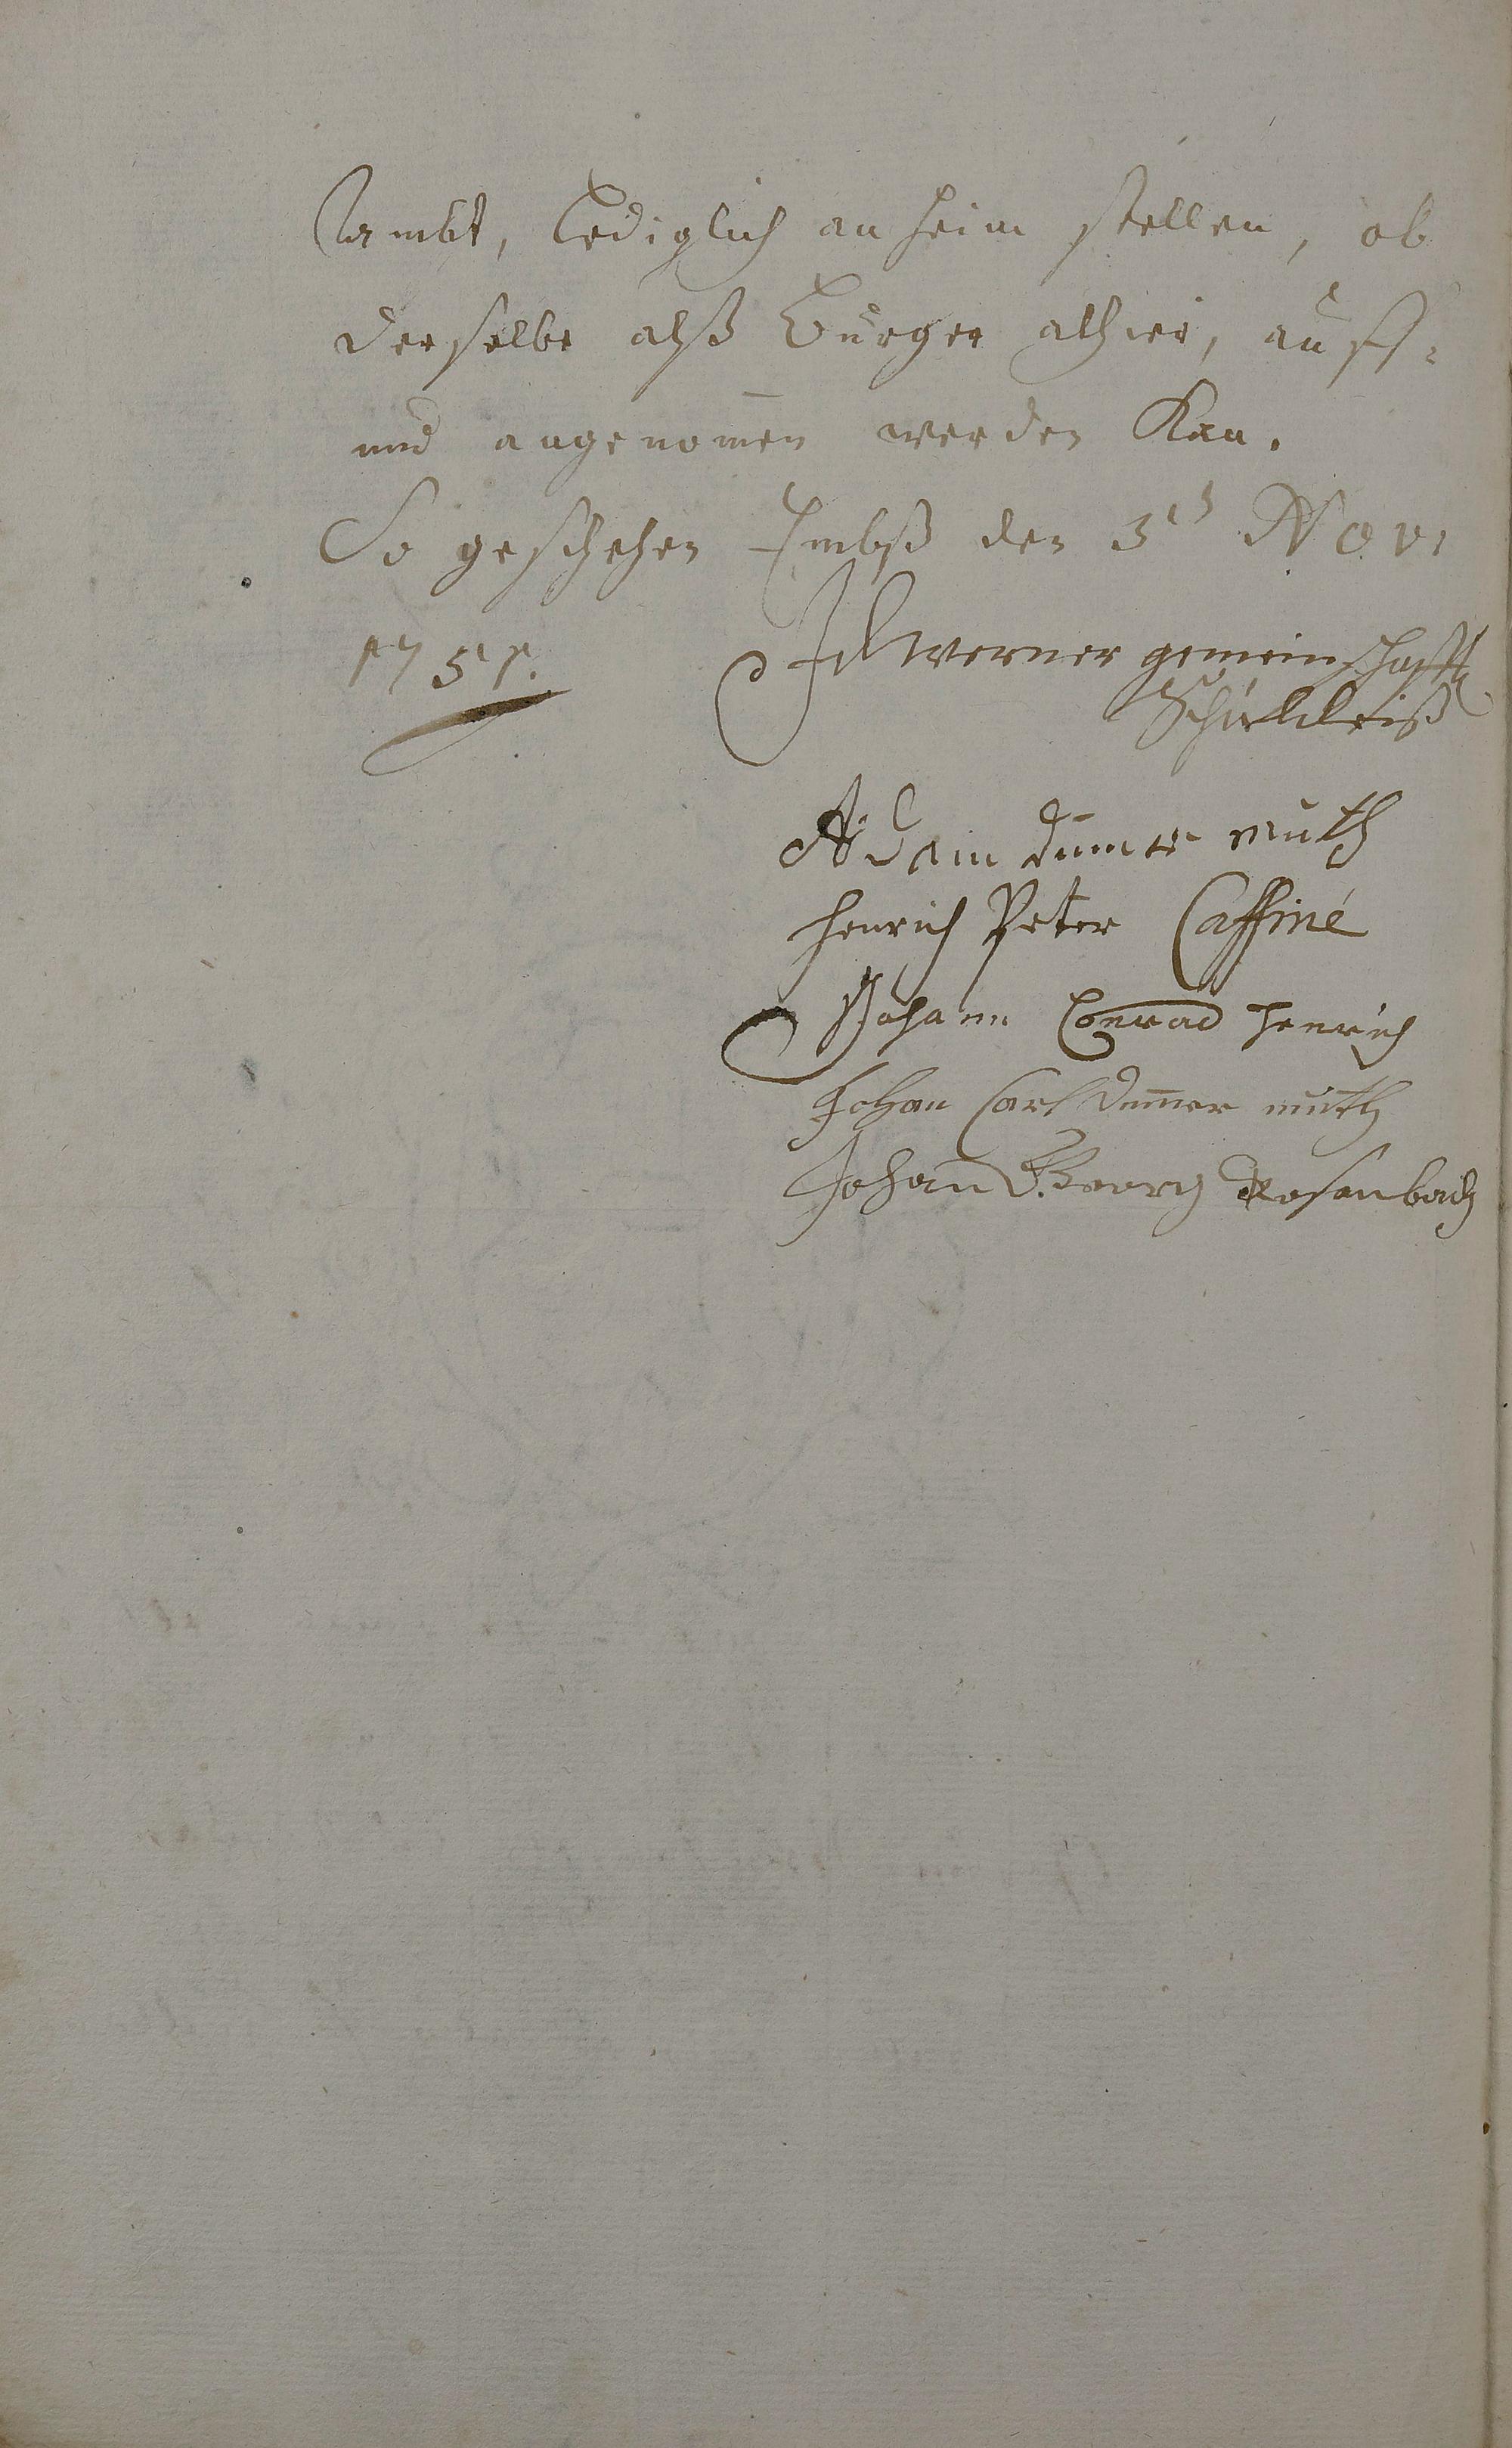 Ambt, lediglich anheim stellen, ob
derselbe alß Burger alhier, auff-
und angenom̄en werden Kan.
So geschehen Embß den 3ts Nov:
1751.
Werner gemeinschafftl
Schultheiß
Adam Dumer muth
Henrich Peter Caffiné
Johann Conrad Henrich
Johan Carl Dum̄er muth
Johan Georg Rosenbach